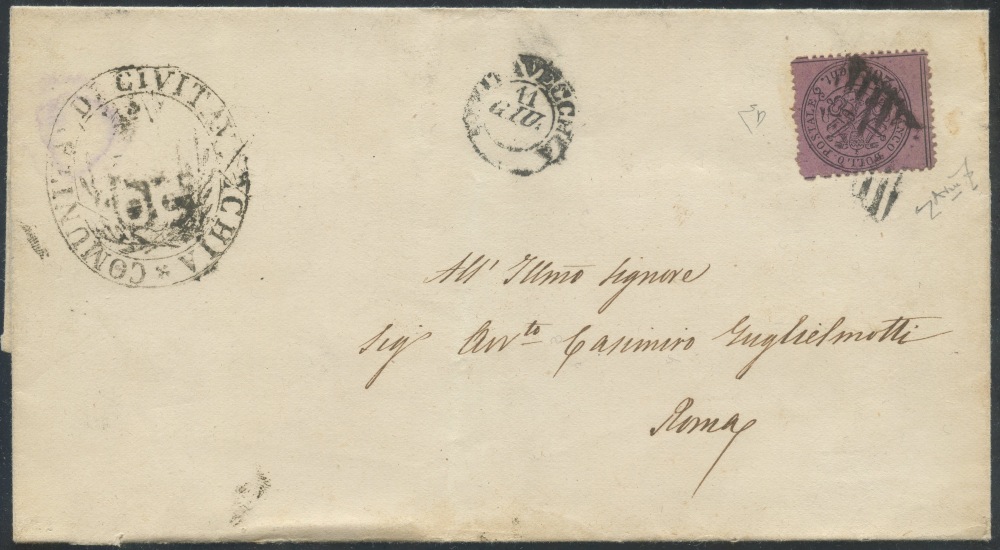 COMUNITA DI CIVITAVECCHIA
CIVITAVECCHIA
11
GIU.
FRANCO BOLLO POSTALE 20 CENT.
All' Illmo Signore
Sig Avvto Casimiro Guglielmotti
Roma